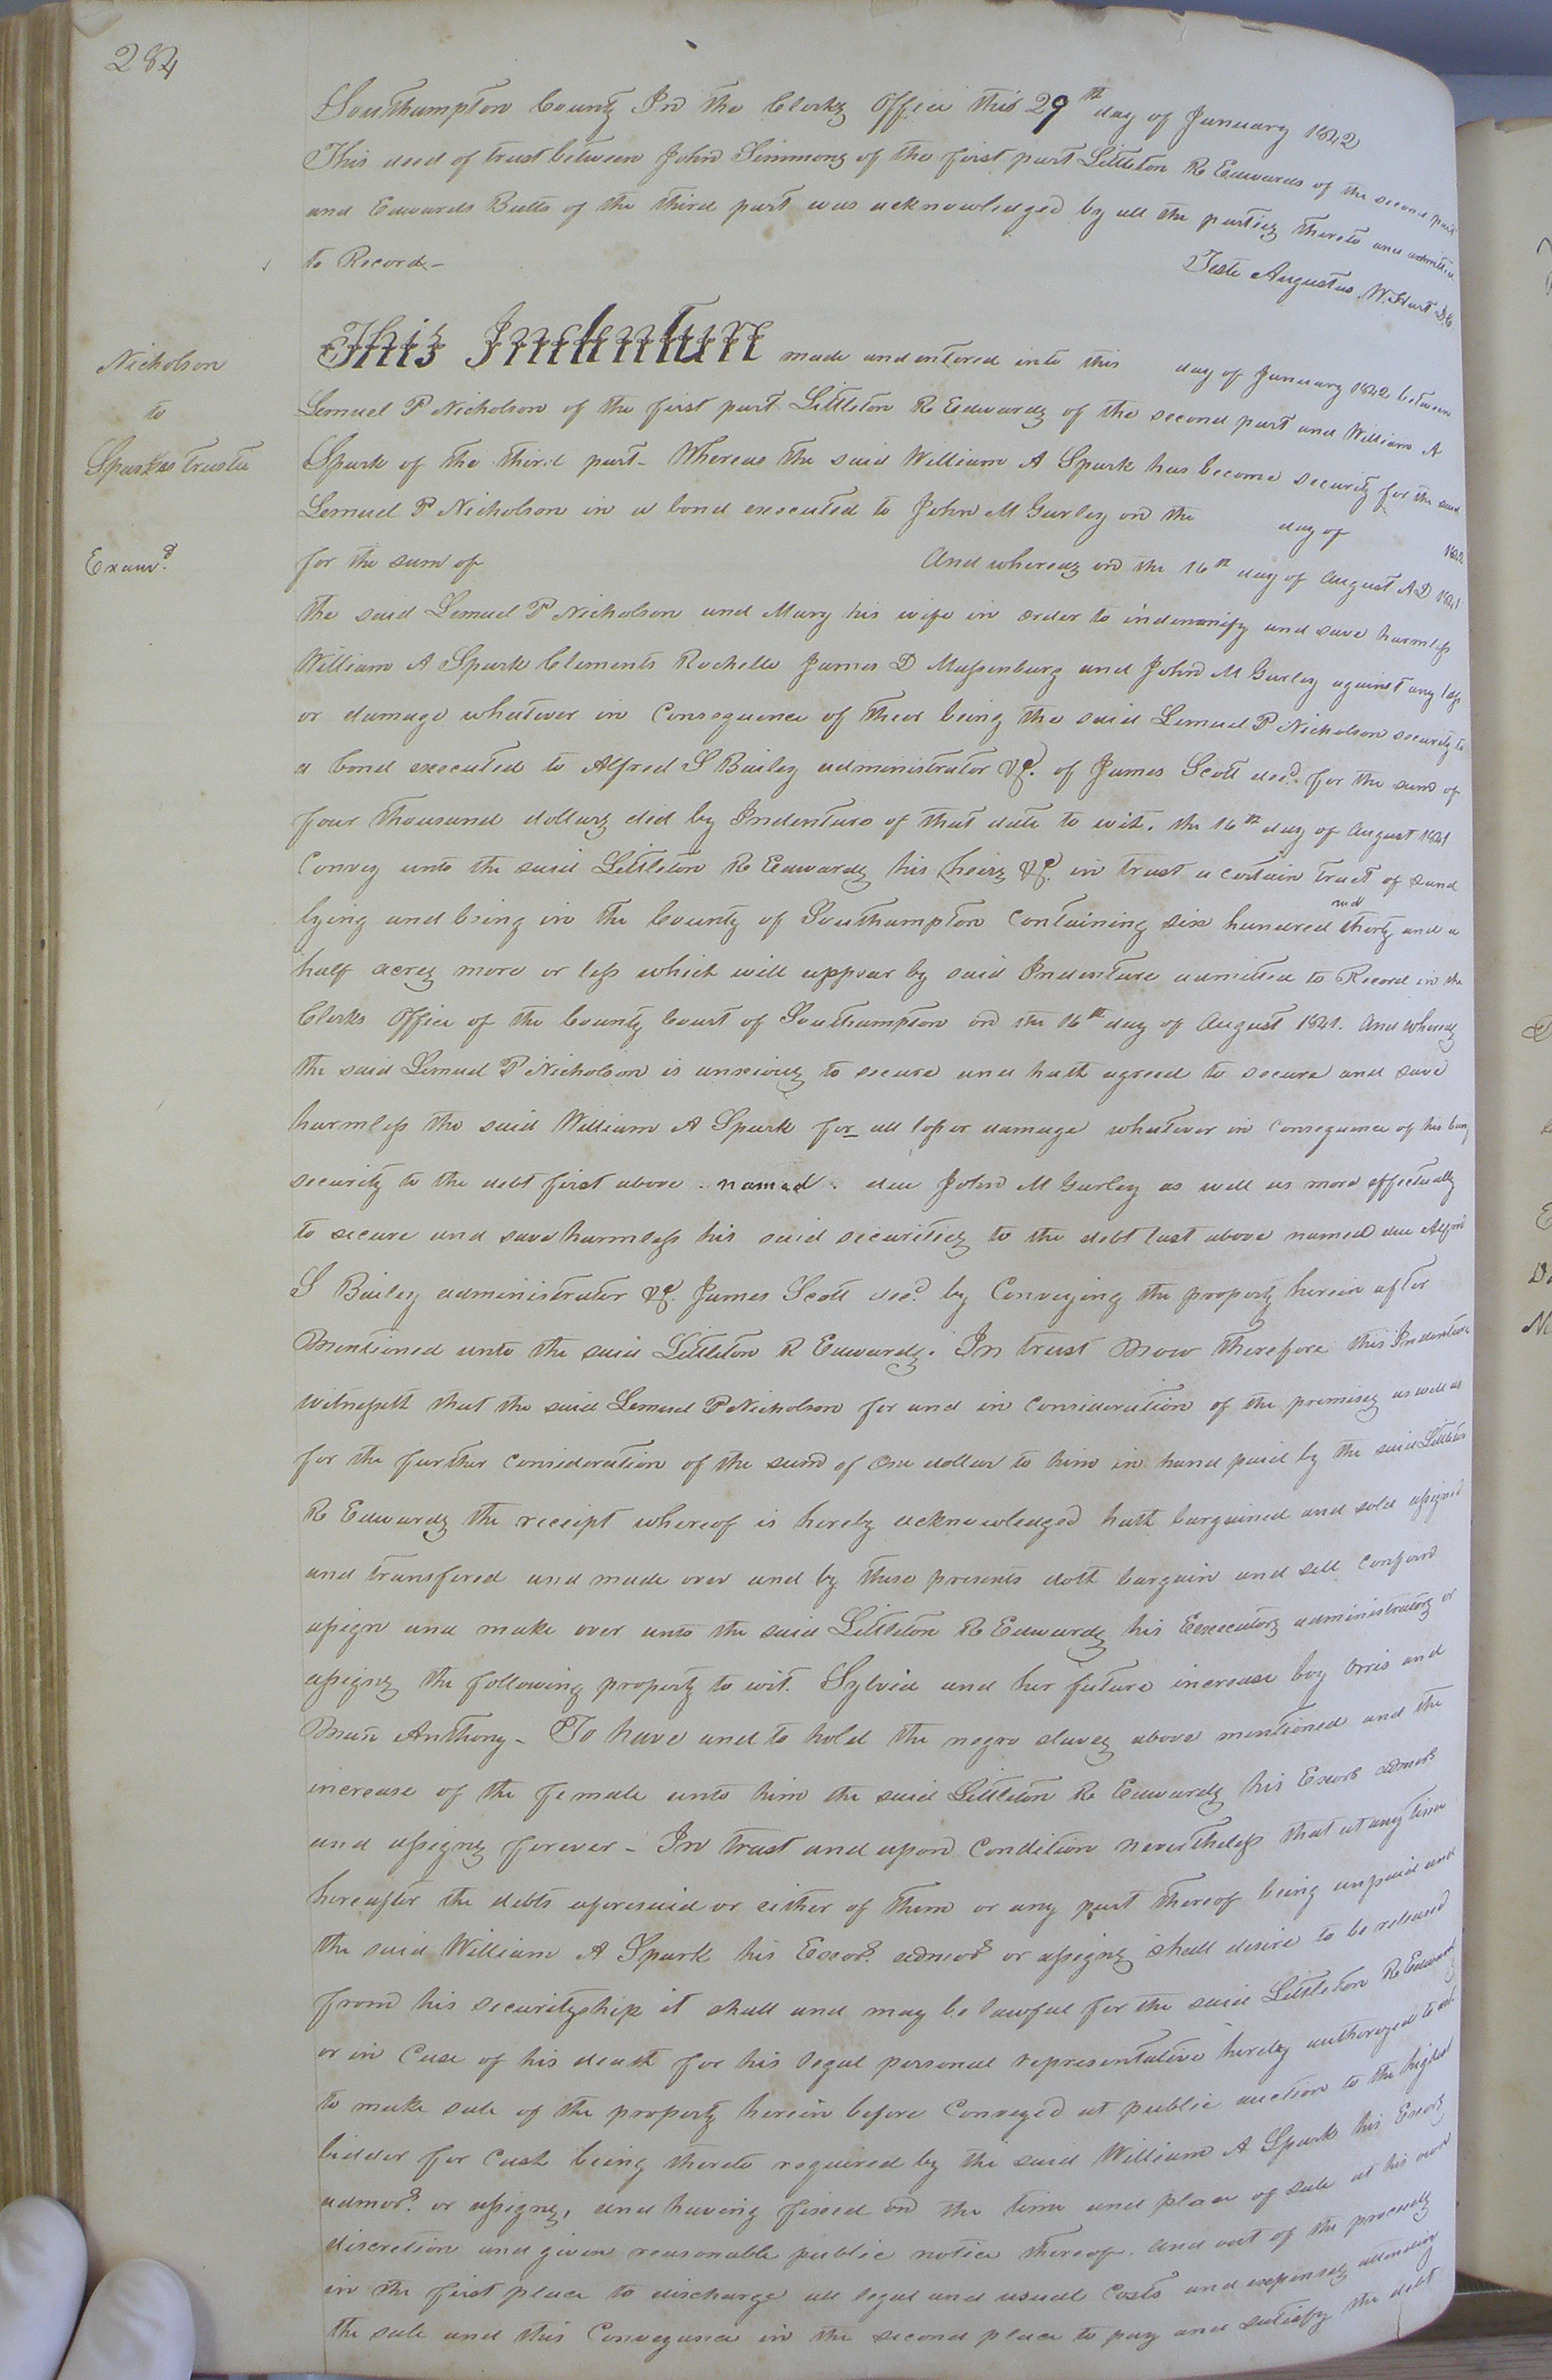 284
Southampton County In the Clerks Office this 29th day of January 1842
This deed of trust between John Simmons of the first part Littleton R Edwards of the second part
and Edwards Butts of the third part was acknowledged by all the parties thereto and admitted
to Record -
Teste Augustus W. Hart D.C.
Nicholson
to
Sparks trustee
Examd.
This Indenture made and entered into this day of January 1842 between
Lemuel P Nicholson of the first part Littleton R Edwards of the second part and William A
Spark of the third part - Whereas the said William A Spark has become security for the said
Lemuel P Nicholson in a bond executed to John M Gurley on the day of 1842
for the sum of And whereas on the 16th day of August A D 1841
the said Lemuel P Nicholson and Mary his wife in order to indemnify and save harmless
William A Spark Clements Rochelle James D Massenburg and John M Gurley against any loss
or damage whatever in Consequence of their being the said Lemuel P Nicholson security to
a bond executed to Alfred S Bailey administrator &c. of James Scott decd. for the sum of
four thousand dollars did by Indenture of that date to wit. the 16th day of August 1841
Convey unto the said Littleton R Edwards his heirs &c. in trust a certain tract of Land
lying and being in the County of Southampton Containing six hundred and thirty and a
half acres more or less which will appear by said Indenture admitted to Record in the
Clerks Office of the County Court of Southampton on the 16th day of August 1841. And whereas
the said Lemuel P Nicholson is anxious to secure and hath agreed to secure and save
harmless the said William A Spark for all loss or damage whatever in Consequence of his being
security to the debt first above named due John M Gurley as well as more effectually
to secure and save harmless his said securities to the debt last above named due Alfred
S Bailey administrator &c. James Scott decd. by Conveying the property herein after
Mentioned unto the said Littleton R Edwards. In trust Now therefore this Indenture
witnesseth that the said Lemuel P Nicholson for and in Consideration of the premises as well as
for the further Consideration of the sum of One dollar to him in hand paid by the said Littleton
R Edwards the receipt whereof is hereby acknowledged hath bargained and sold assigned
and transfered and made over and by these presents doth bargain and sell Confirm
assign and make over unto the said Littleton R Edwards his Executors administrators or
assigns the following property to wit. Sylvia and her future increase boy Orris and
Man Anthony - To have and to hold the negro slaves above mentioned and the
increase of the female unto him the said Littleton R Edwards his Exors admors
and assigns forever - In trust and upon Condition nevertheless that at any time
hereafter the debts aforesaid or either of them or any part thereof being unpaid and
the said William A Spark his Exors. admors or assigns shall desire to be released
from his securityship it shall and may be lawful for the said Littleton R Edwards
or in Case of his death for his legal personal representative hereby authorized to act
to make sale of the property herein before Conveyed at public auction to the highest
bidder for Cash being thereto required by the said William A Spark his Exors
admors. or assigns, and having fixed on the time and place of sale at his own
discretion and given reasonable public notice thereof. And out of the proceeds
in the first place to discharge all legal and usual Costs and expenses attending
the sale and this Conveyance in the second place to pay and satisfy the debt